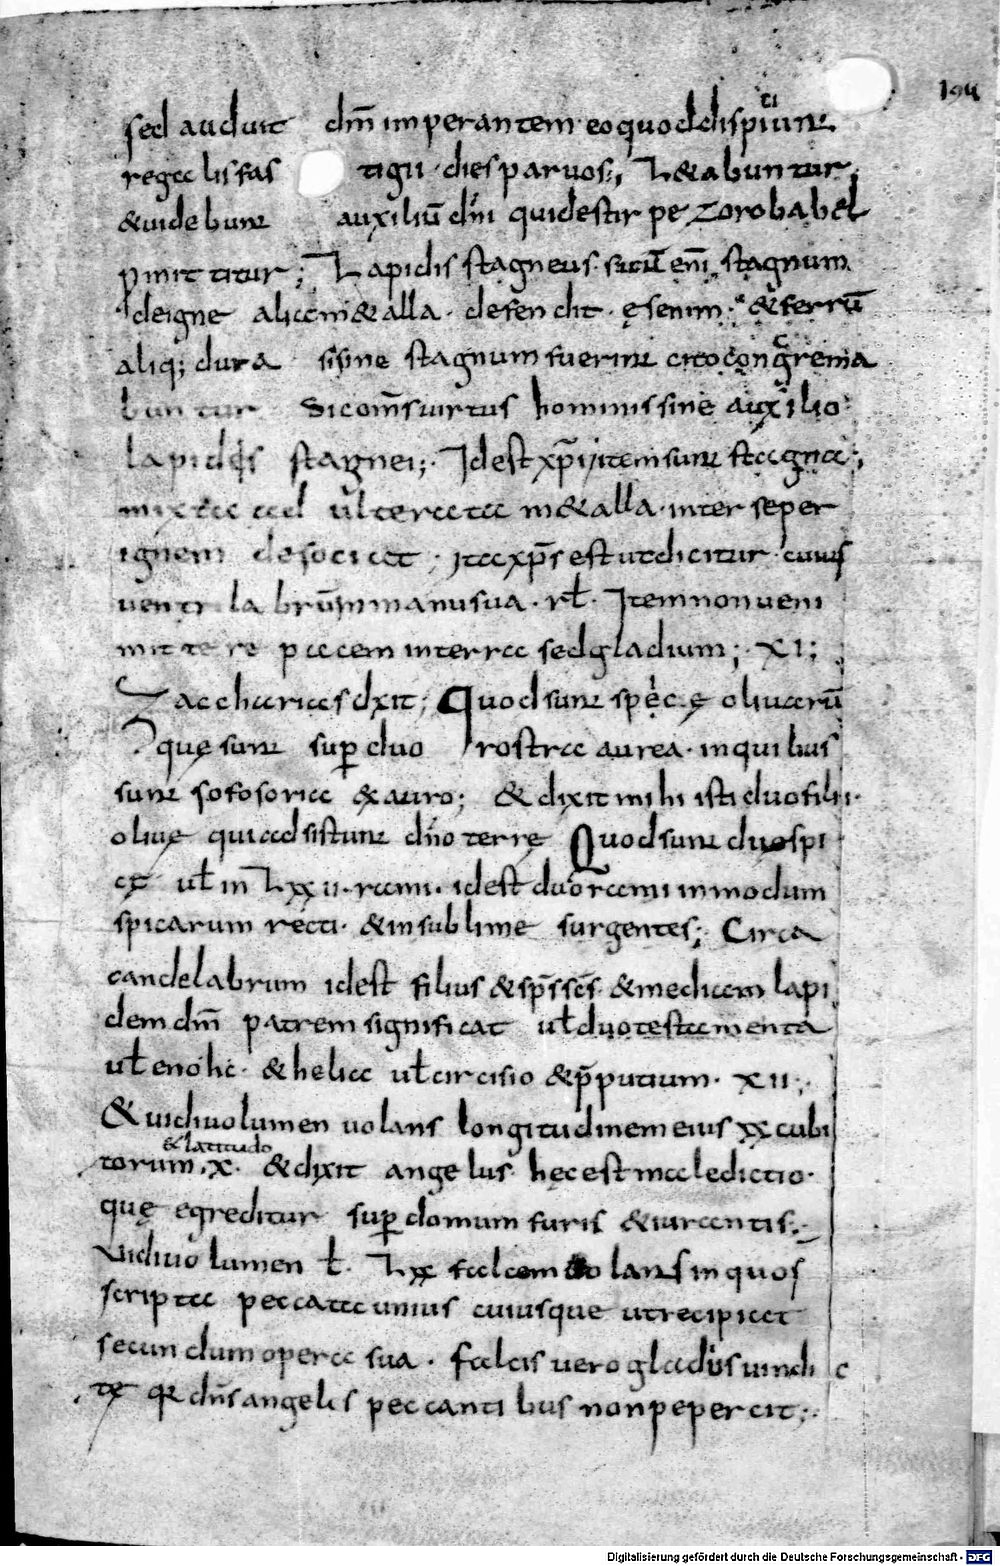 194
sed audiuit dm̄ imperantem· eo quod dispiciunt
rega lis fas tigii· dies paruos;, L&abuntur,
&uidebunt auxiliū dn̄i quidestir pe zorobabel
pmittitur; Lapidis stagneus· sicut enī stagnum
deigne alia m&alla· defendit· ęsenim· &ferrū
aliq; dura sisine stagnum fuerint cito congremia
buntur Sicom̄s uirtus hominis sine auxilio
lapidis stagnei;· Idest xp̄i item sunt stagna;,
mixta ad ultera ta m&alla· inter seper
ignem desociat; ita xp̄s est ut dicitur· cuius
uenti labrum inmanusua· rł· Item non ueni
mittere pacem interra sed gladium;· XI;
Zaccharias dxit; Quod sunt specię oliuarū
quę sunt sup duo rostra aurea· inquibus
sunt sofosoria &xauro; & dixit mihi isti duo filii·
oliuę qui adsistunt dn̄o terrę Quod sunt duo spi
cę uł in Lxx ii· rami· idest duo rami inmodum
spicarum recti· &insublime surgentes;· Circa
candelabrum idest filius &sp̄s sc̄s &mediam lapi
dem dm̄ patrem significat uł duo testamenta
uł enohc· &helia uł circisio &p̄putium· XII;·
&uidi uolumen uolans longitudinem eius xx cubi
&latitudo
torum·x· &dixit angelus· hęc est maledictio·
quę egreditur sup domum furis &iurantis;·
Uidi uolumen ł· Lxx falcem uolans in quos
scripta peccata unius cuiusque ut recipiat
secundum opera sua· falcis uero gladius uindic
tę qr dn̄s angelis peccantibus non pepercit;·
Digitalisierung gefördert durch die Deutsche Forschungsgemeinschaft - DFG